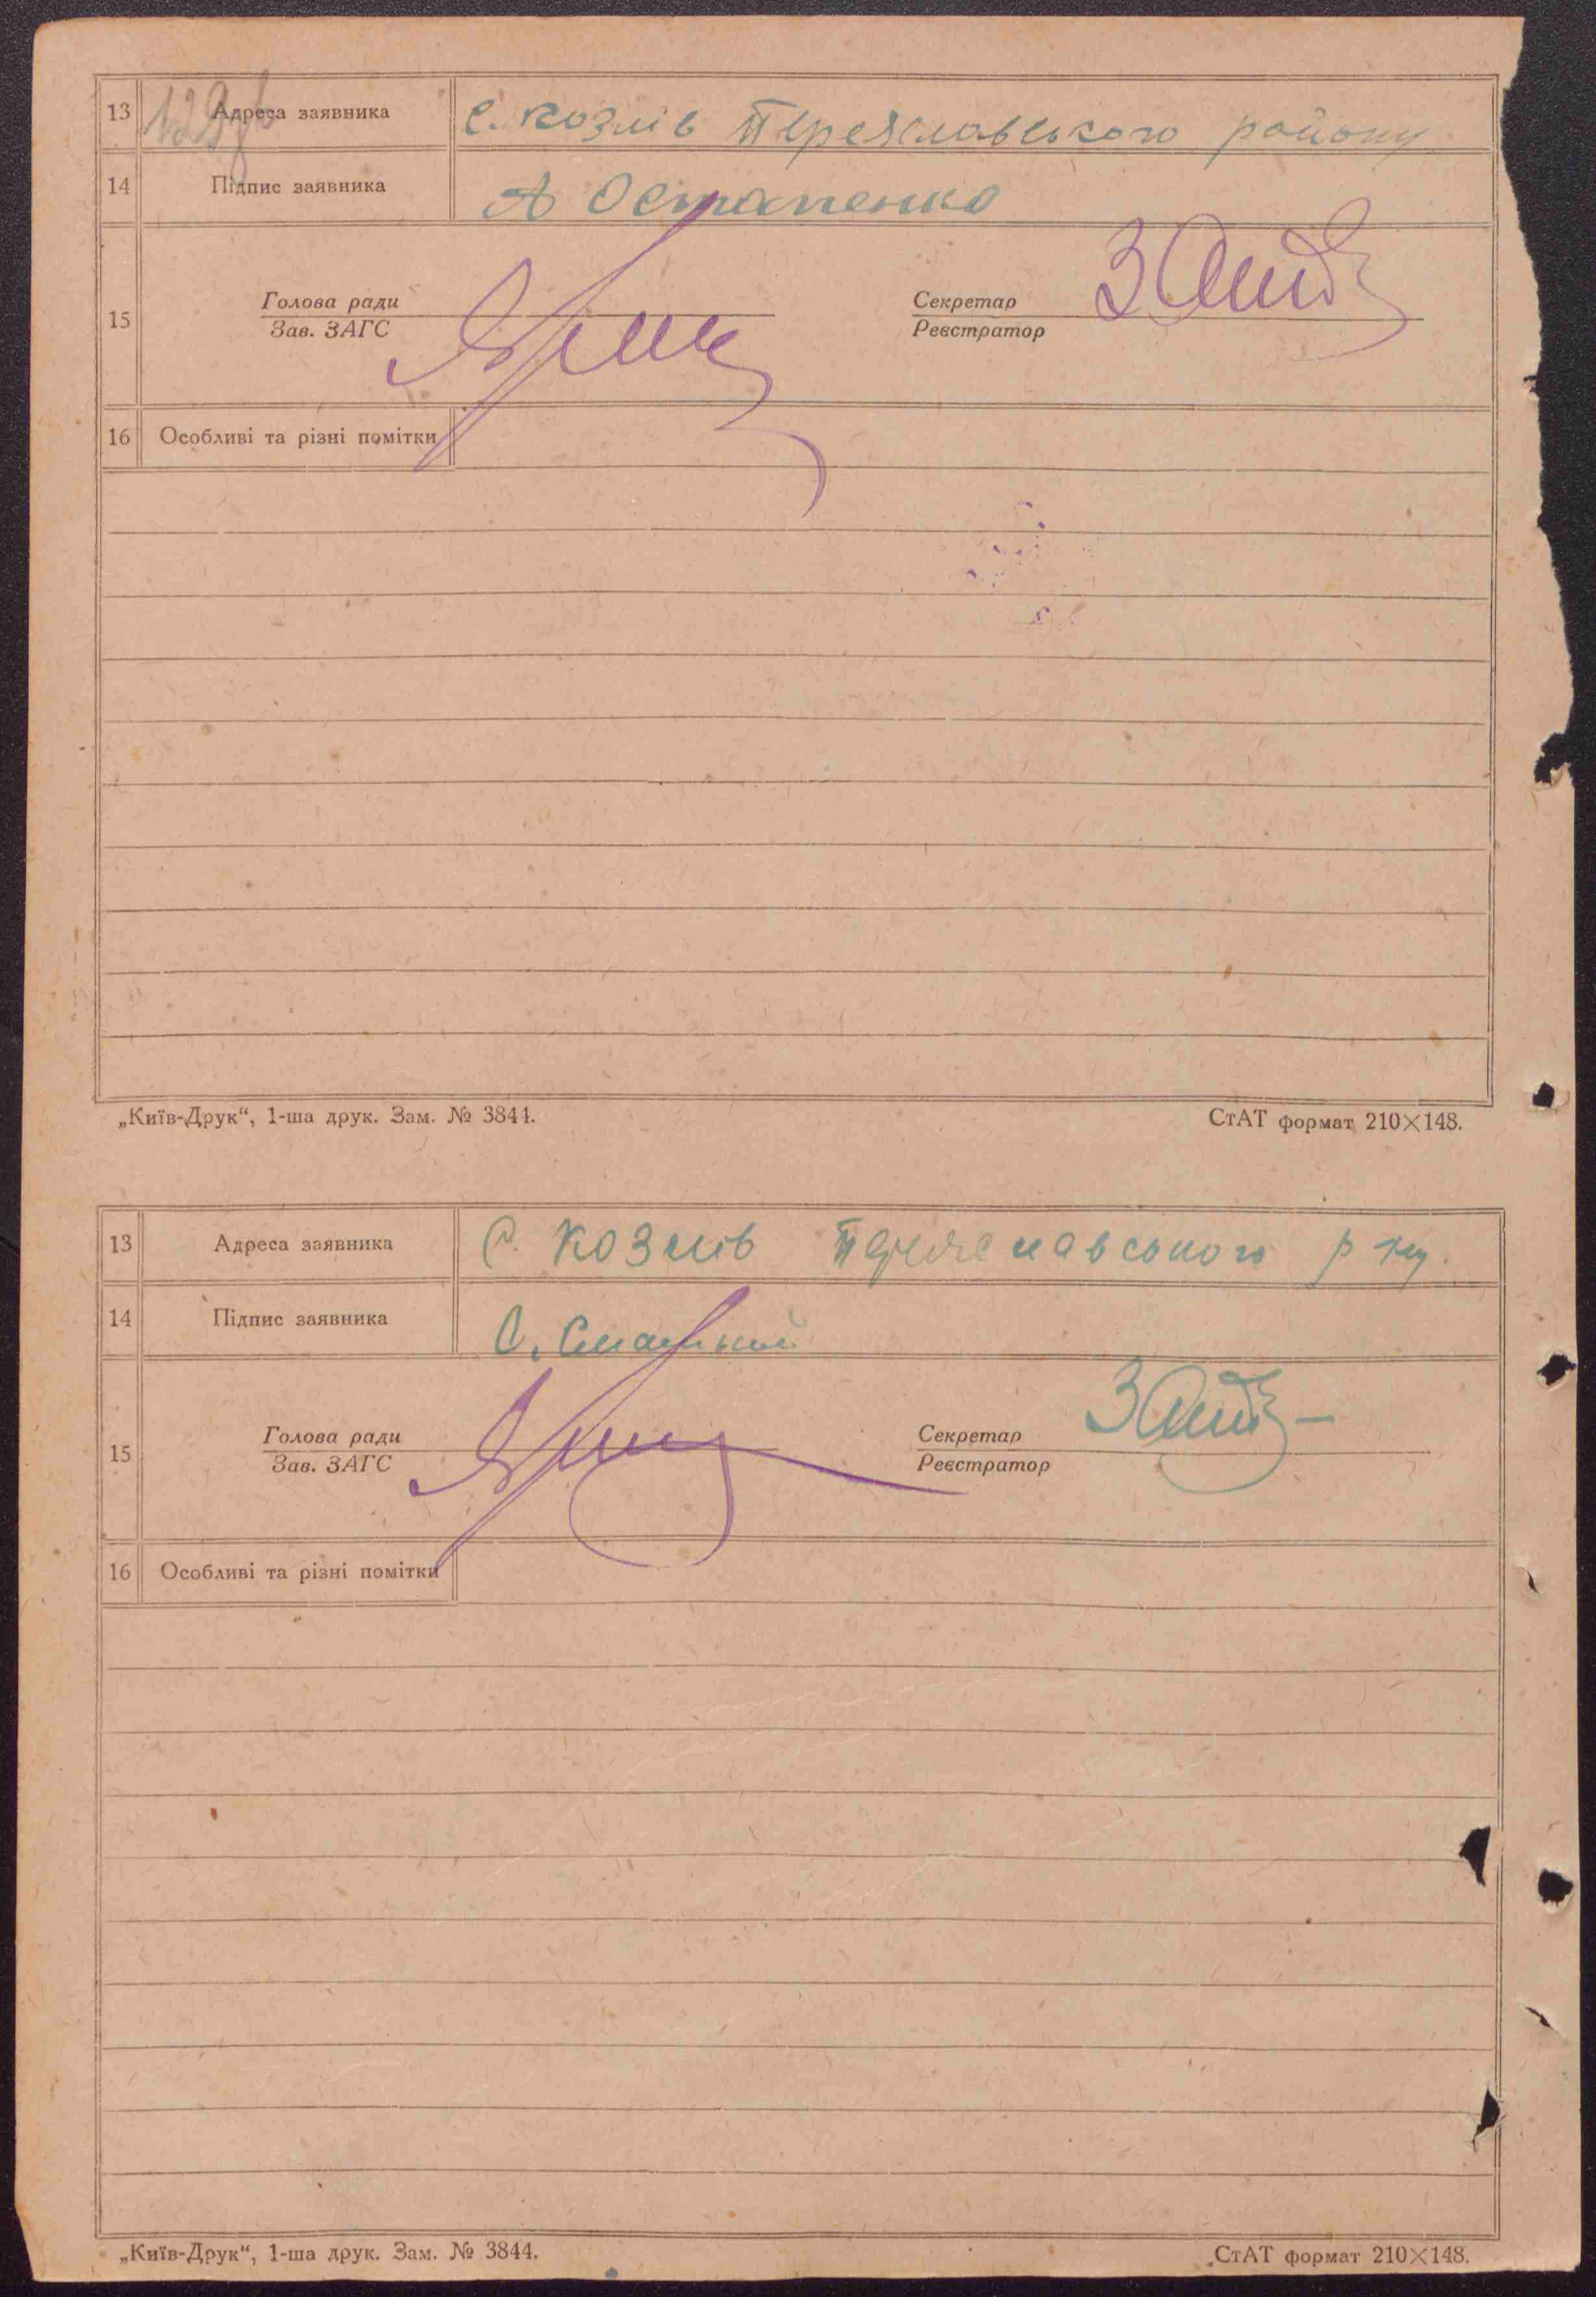 129зв
13 Адреса заявника с. козлів Переяславського району
14 Підпис заявника А Остапенко
15 Голова ради Секретар
Зав. ЗАГС Реєстратор
16 Особливі та різні помітки
„Київ-Друк“, 1-ша друк. Зам. № 3844. СтАТ формат 210×148.
13 Адреса заявника С. Козлів Переяславського р-ну.
14 Підпис заявника С.
15 Голова ради Секретар
Зав. ЗАГС Реєстратор
16 Особливі та різні помітки
„Київ-Друк“, 1-ша друк. Зам. № 3844. СтАТ формат 210×148.